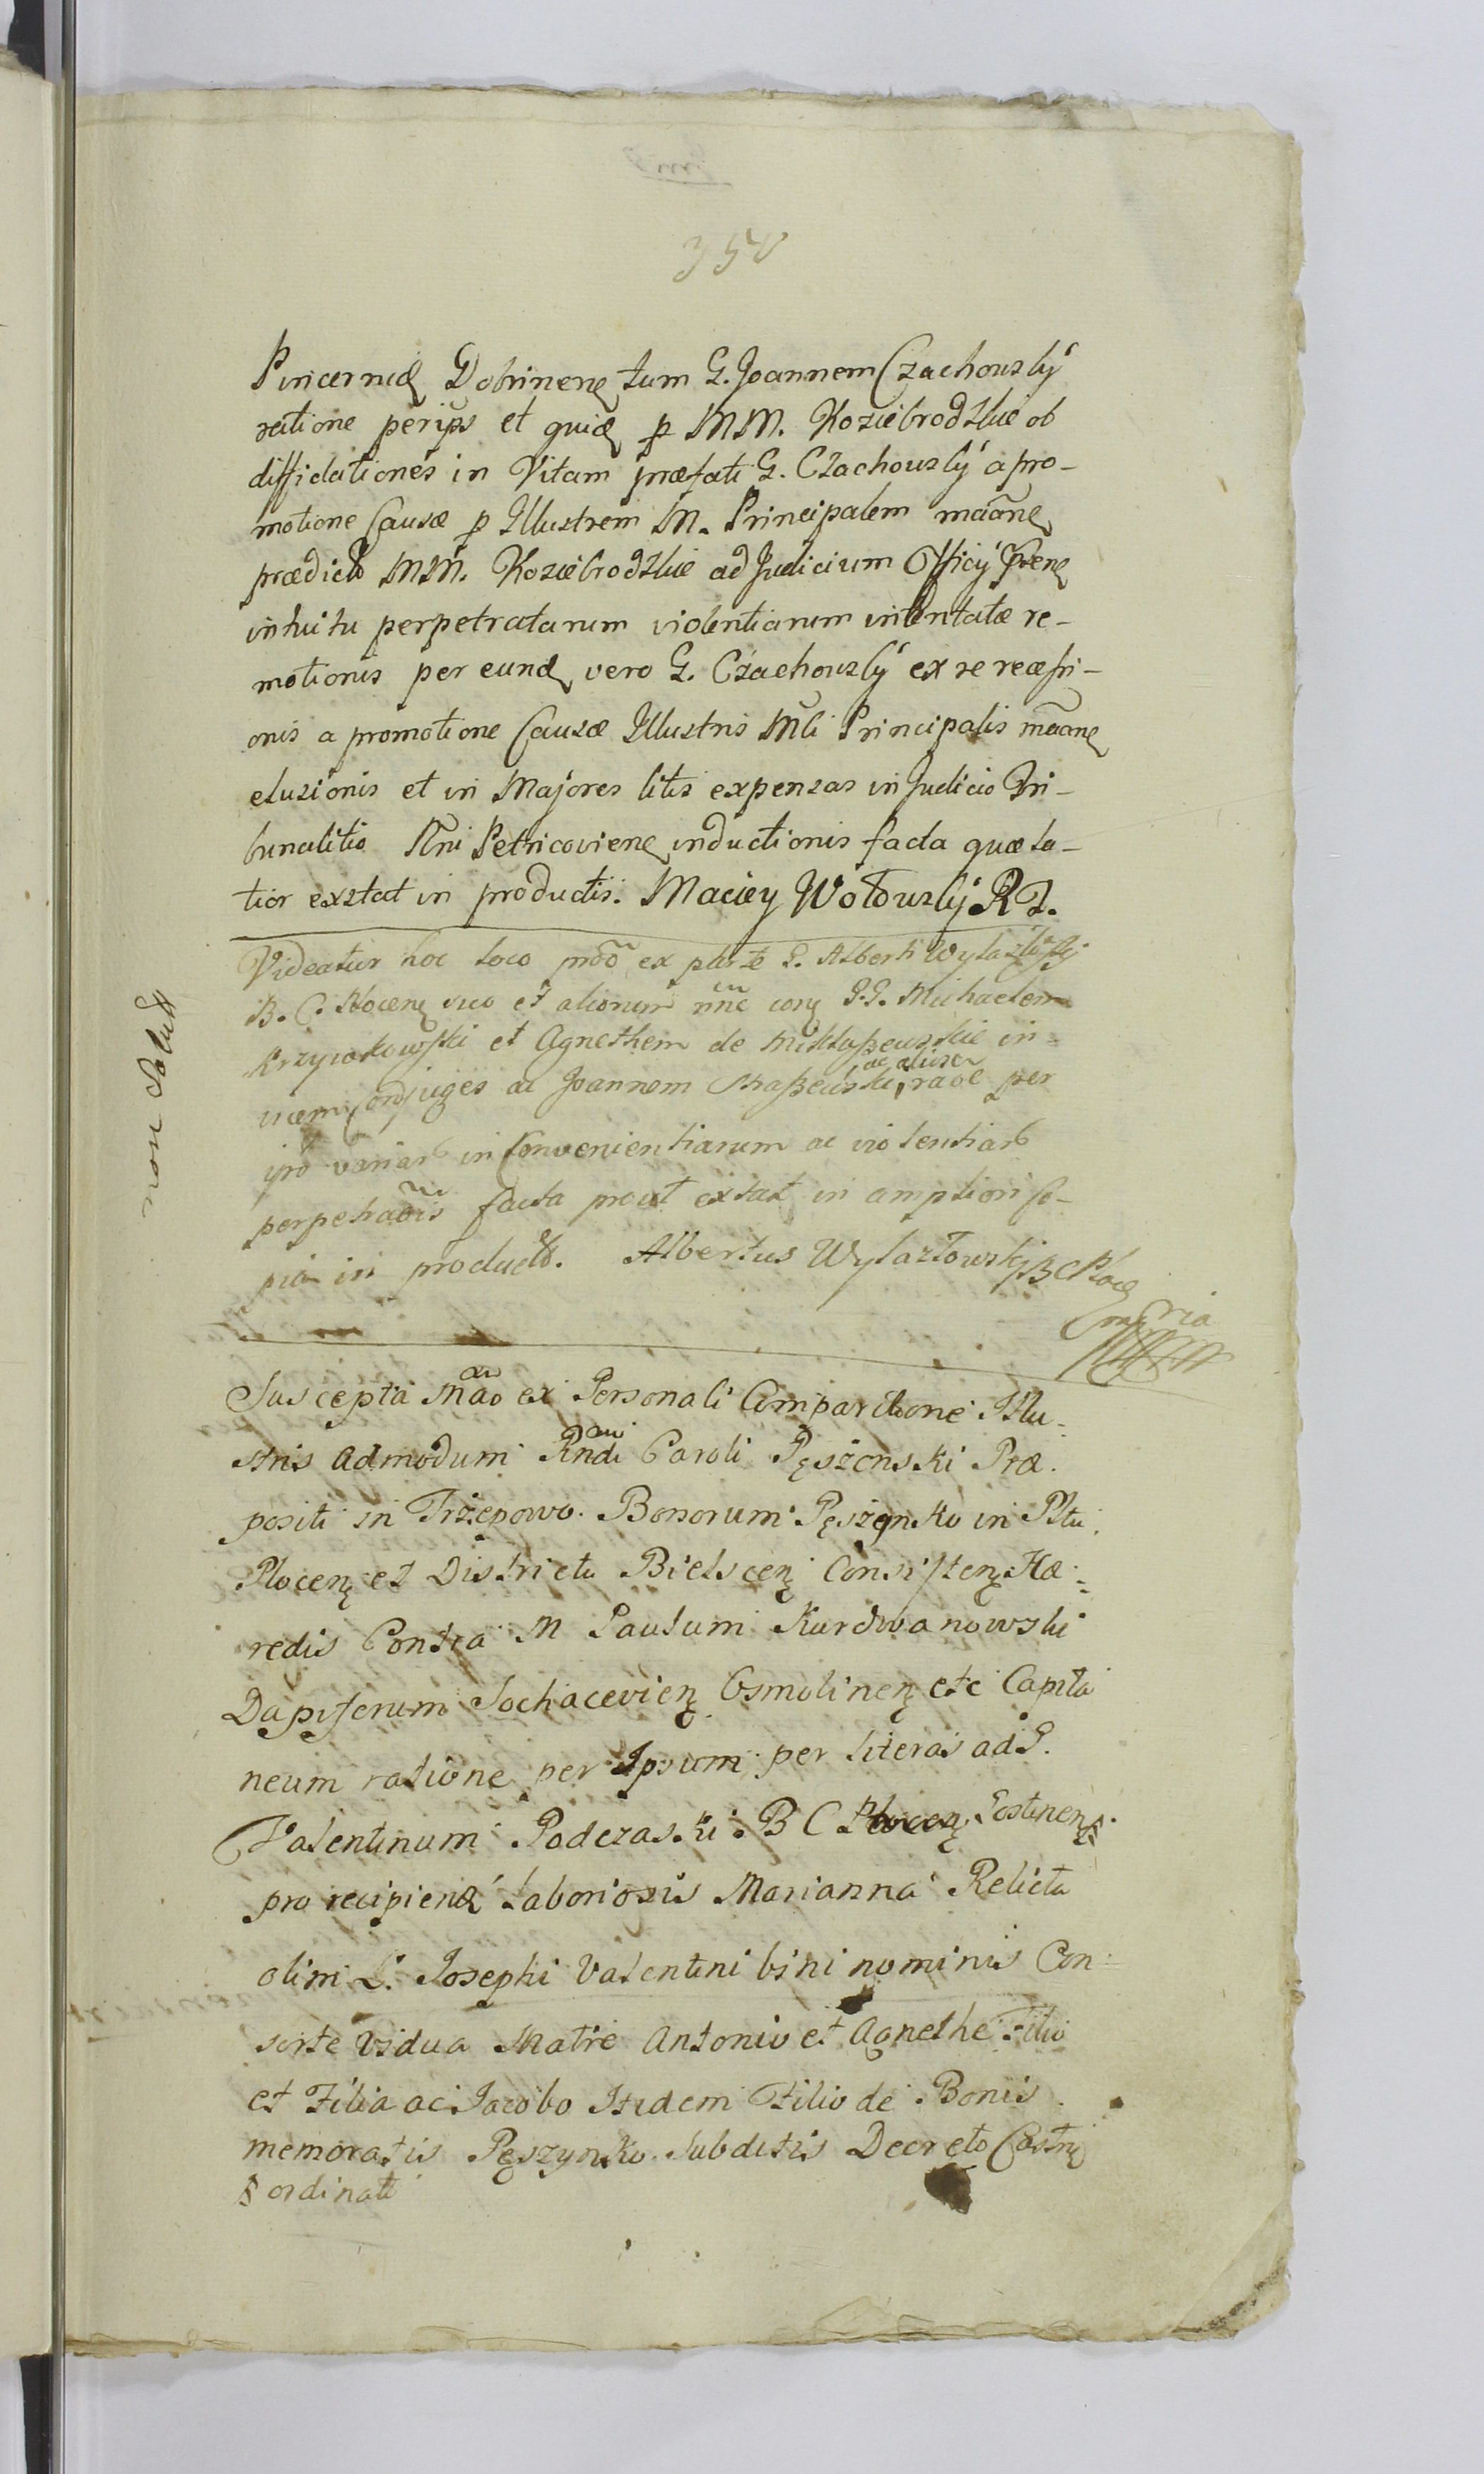 350
Pincernæ Dobrinenę tum G. Joannem Czachowsky
ratione per ipsos et quidę p MM. Koziebrodzkie ob
diffidationes in Vitam præfati G. Czachowsky a pro-
motione Causæ p Illustrem M. Principalem mãanę
prædictos MM. Koziebrodzkie ad Judicium Officy
intuitu perpetratarum violentiarum intentatæ re-
motionis per eundę vero G. Czachowsky ex re recessi-
onis a promotione Causæ Illustris Mfci Principalis mãanę
elusionis et in Majores litis expensas in Judicio Tri-
bunalitio Rñi Petricovienę inductionis facta quæ la-
tior extat in productis. Maciey Wołowsky R
Videatur hoc loco mõo ex parte G. Alberti Wylazłowski
B. C. Plocenę suo et aliorum nñe corą G.G. Michaelem
Krzywkowski et Agnethem de in-
vicem Conjuges ac Joannem ac alios raõe per
ipsos variarum inconvenientiarum ac violentiarum
perpetraõis facta prout extat in ampliori co-
pia in productis. Albertus Wylazłowski B C Ploc
mpria
non solvit
Suscepta Mão ex Personali Comparitione Illu-
stris Admodum Rndi Caroli Pęszenski Præ-
positi in Trzepowo Bonorum Pęszynko in Pltu
Plocenę et Districtu Bielscenę Consistenę Hæ-
redis Contra M Paulum Kurdwanowski
Dapiferum Sochacevienę Osmolinenę etc Capita
neum ratione per Ipsum per literas ad G.
Valentinum Podczaski B C Gostinenę
pro recipiendę Laboriosis Marianna Relicta
olim L. Josephi Valentini bini nominis Con-
sorte Vidua Matre Antonio et Agnethe Filio
et Filia ac Jacobo Itidem Filio de Bonis
memoratis Pęszynko Subditis Decreto Castri
ordinati